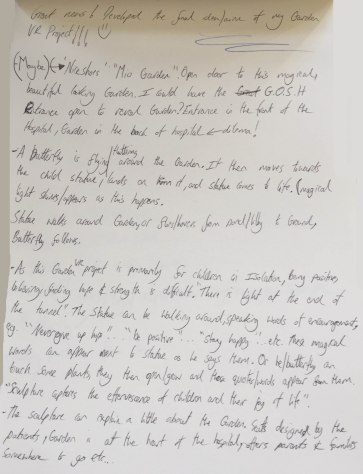 Great news! Developed the final idea/aims of my Garden
VR Project/!!! :)
(Maybe) "Nice Stars" "Mio Garden". Open door to this magical,
beautiful looking Garden. I could have the G.O.S.H
Entrance open to reveal Garden? Entrance in the front of the
Hospital, Garden in the back of hospital ← dilema!
- A Butterfly is flying/fluttering around the Garden. It then moves towards
the child statue, lands on it, and statue comes to life. (magical
light shines/appears as this happens.
Statue walks around Garden, or flies/hovers from to Ground,
Butterfly follows.
- As this Garden VR project is primarily for children in Isolation, being positive,
finding hope & strength is difficult. "There is light at the end of
the tunnel". The statue can be walking around, speaking words of encouragement,
eg. "Never give up hope".. "be positive"... "stay happy"... etc. These magical
words can appear next to statue as he says them. Or he/butterfly can
touch some plants, they then open/grow and these quotes/words appear from them.
"Sculpture captures the effervescence of children and their joy of life"
- The sculpture can explain a little about the Garden. Seats designed by the
patients, Garden is at the heart of the hospital, offers parents & families
somewhere to go etc...